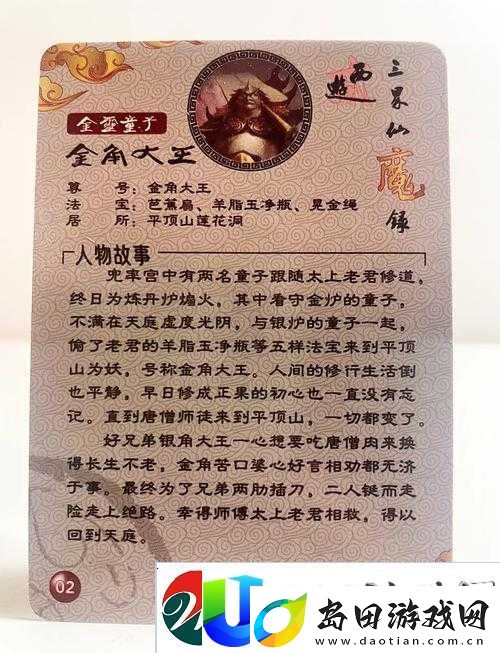 西遊
三界仙魔録
金靈童子
金角大王
尊 号：金角大王
法 宝：芭蕉扇、羊脂玉净瓶、晃金绳
居 所：平顶山莲花洞
人物故事
兜率宫中有两名童子跟随太上老君修道，
终日为炼丹炉煽火，其中看守金炉的童子，
不满在天庭虚度光阴，与银炉的童子一起，
偷了老君的羊脂玉净瓶等五样法宝来到平顶
山为妖，号称金角大王。人间的修行生活倒
也平静，早日修成正果的初心也一直没有忘
记。直到唐僧师徒来到平顶山，一切都变了。
好兄弟银角大王一心想要吃唐僧肉来换
得长生不老，金角苦口婆心好言相劝都无济
于事。最终为了兄弟两肋插刀，二人铤而走
险走上绝路。幸得师傅太上老君相救，得以
回到天庭。
02
岛田游戏网
www.daotian.com.cn